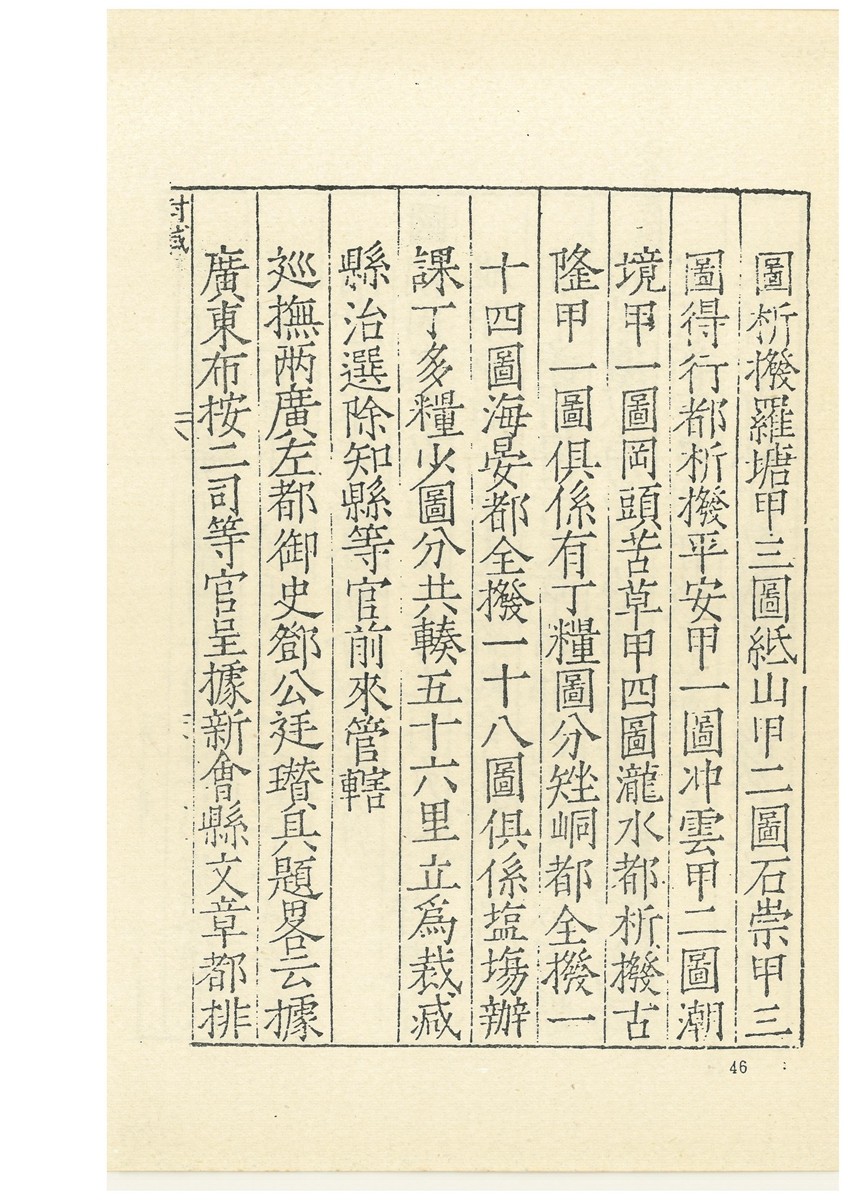 圖析撥羅塘甲三圖紙山甲二圖石崇甲三
圖得行都析撥平安甲一圖冲雲甲二圖潮
境甲一圖岡頭苦草甲四圖瀧水都析撥古
隆甲一圖俱係有丁糧圖分矬峒都全撥一
十四圖海晏都全撥一十八圖俱係塩塲辦
課丁多糧少圖分共輳五十六里立爲裁减
縣治選除知縣等官前來管轄
廵撫兩廣左都御史鄧公廷瓚具題畧云據
廣東布按二司等官呈據新會縣文章都排
46